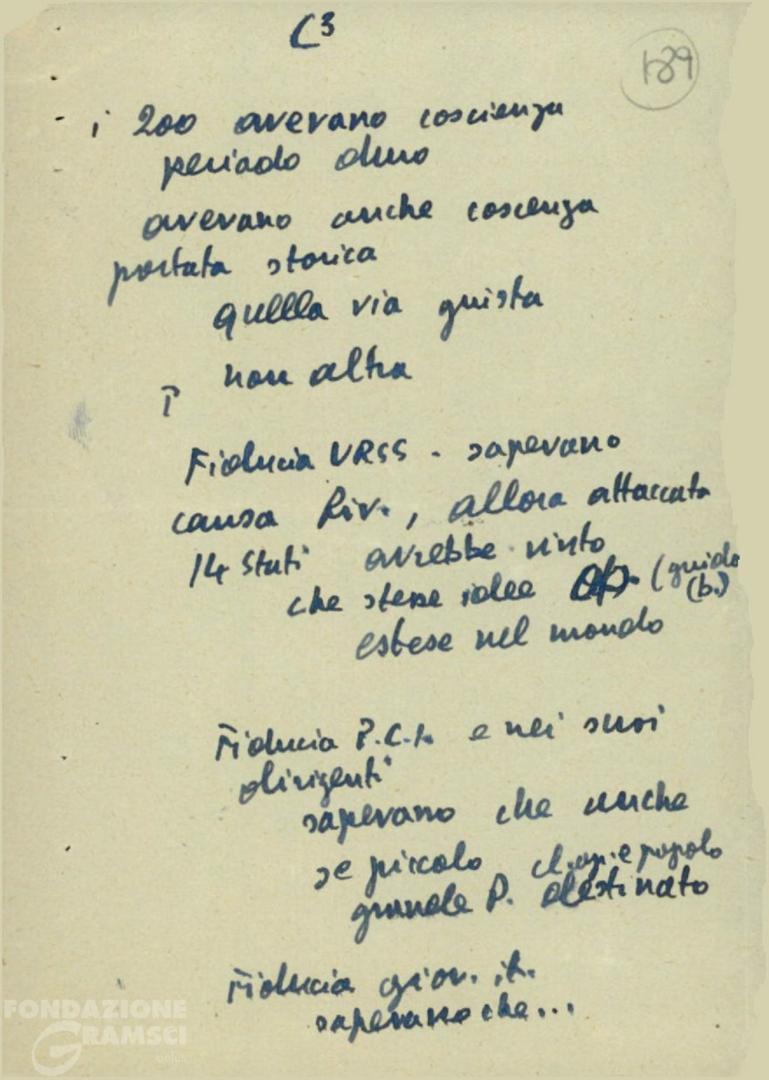 C3
189
i 200 avevano coscienza
periodo duro
avevano anche coscenza
portata storica
quella via giusta
non altra
Fiducia URSS - sapevano
causa Riv., allora attaccata
14 Stati avrebbe vinto
che stesse idee (guida
(b.)
estese nel mondo
Fiducia P.C.I. e nei suoi
dirigenti
sapevano che anche
se piccolo cl. op. e popolo
grande P. destinato
Fiducia giov. it.
sapevano che...
FONDAZIONE
GRAMSCI